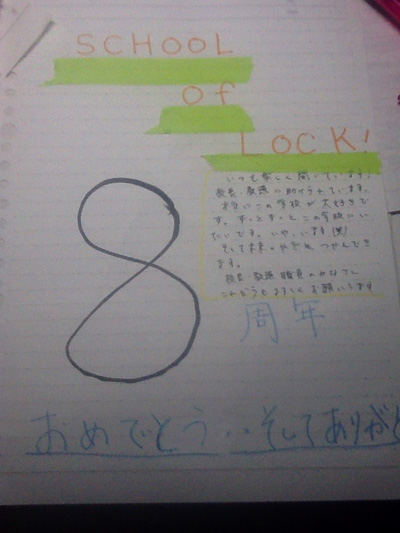 SCHOOL
Of
LOCK!
いつも楽しく聞いています。
校長・教頭に助けられています。
本当にこの学校が大好きで
す。ずっとずっとこの学校にい
たいです。いや、います(笑)
そして未来の
ます。
校長・教頭 職員のみなさん
これからもよろしくお願いします
8
周年
おめでとう・・そしてありがと